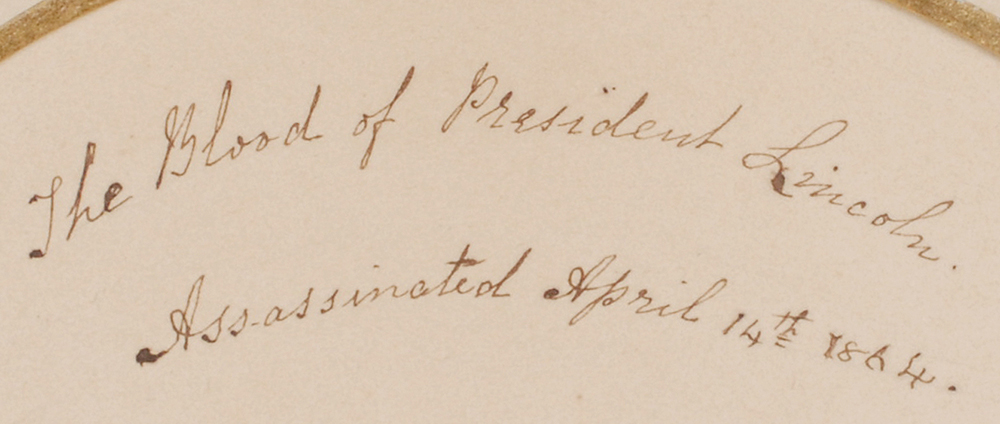 The Blood of President Lincoln.
Assassinated April 14th 1864.